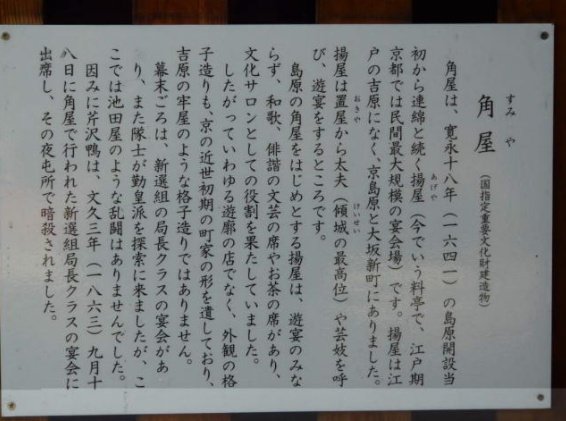 すみや
角屋（国指定重要文化財建造物）
角屋は、寛永十八年（一六四一）の島原開設当
初から連綿と続く揚屋（今でいう料亭で、江戸期
京都では民間最大規模の宴会場）です。揚屋は江
戸の吉原になく、京島原と大坂新町にありました。
揚屋は置屋から太夫（傾城の最高位）や芸妓を呼
び、遊宴をするところです。
島原の角屋をはじめとする揚屋は、遊宴のみな
らず、和歌、俳諧の文芸の席やお茶の席があり、
文化サロンとしての役割を果たしていました。
したがっていわゆる遊廓の店でなく、外観の格
子造りも、京の近世初期の町家の形を遺しており、
吉原の牢屋のような格子造りではありません。
幕末ごろは、新選組の局長クラスの宴会があ
り、また隊士が勤皇派を探索に来ましたが、こ
こでは池田屋のような乱闘はありませんでした。
因みに芹沢鴨は、文久三年（一八六三）九月十
八日に角屋で行われた新選組局長クラスの宴会に
出席し、その夜屯所で暗殺されました。
あげや
おきや
けいせい